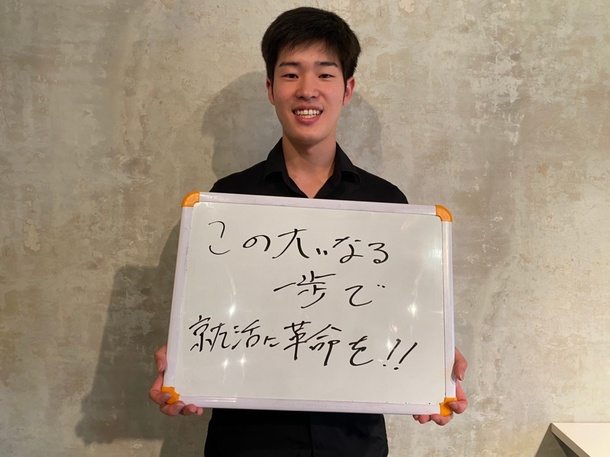 この大いなる
一歩で
就活に革命を!!